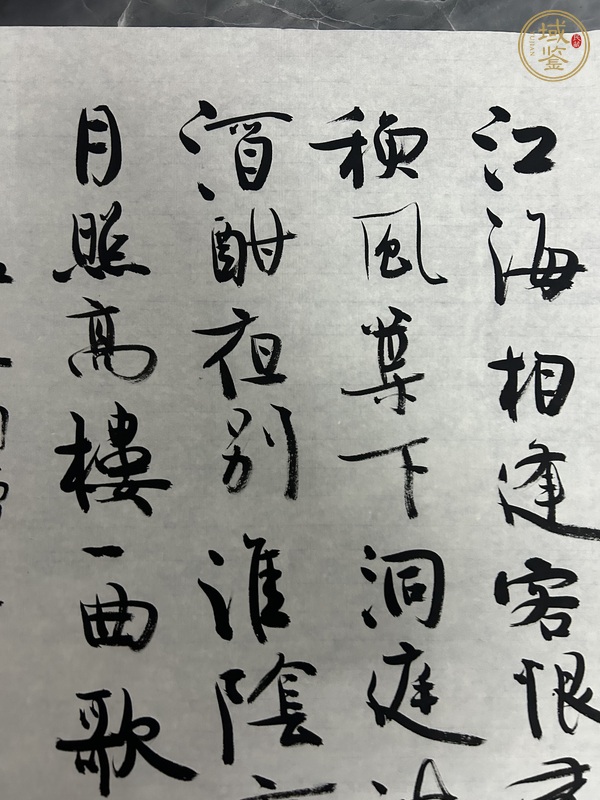 域鉴
江海相逢客恨
秋風葉下洞庭
酒酣夜别淮陰
月照高樓一曲歌